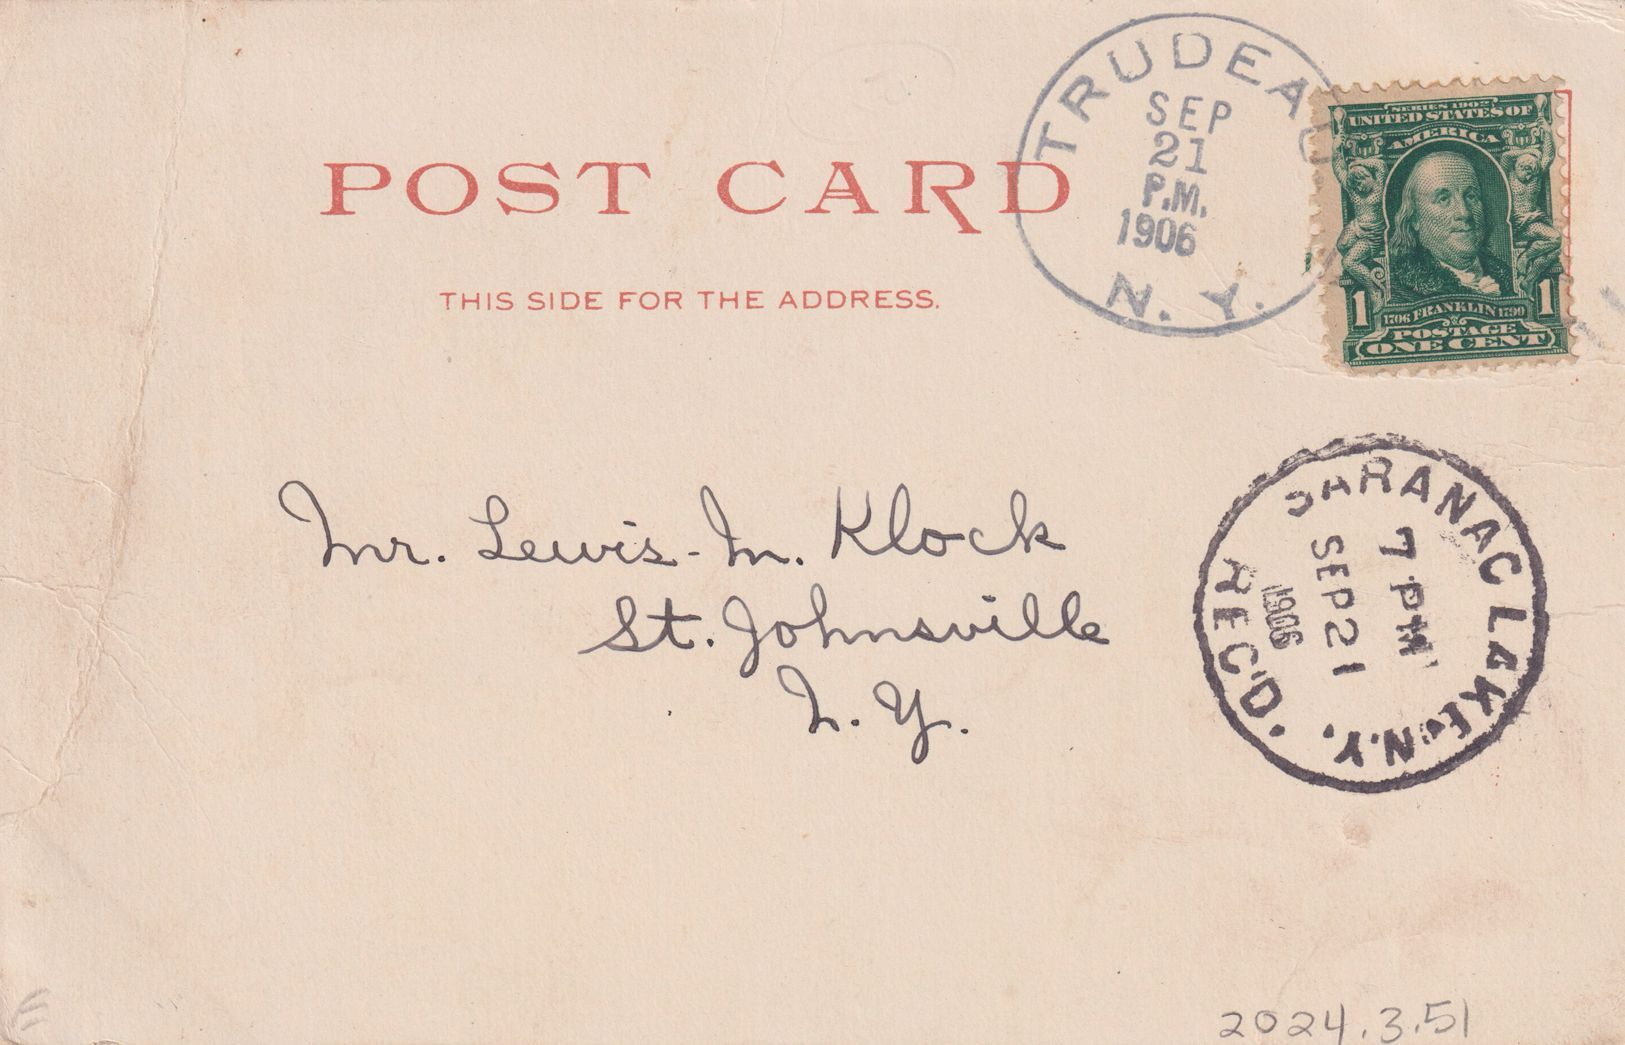 POST CARD
THIS SIDE FOR THE ADDRESS.
TRUDEAU
SEP
21
P.M.
1906
N. Y.
SERIES 1902
UNITED STATES OF
AMERICA
1 1
1706 FRANKLIN 1790
POSTAGE
ONE CENT
Mr. Lewis M. Klock
St. Johnsville
N. Y.
SARANAC LAKE. N.Y.
7 PM
SEP 21
1906
REC'D.
E
2024.3.51